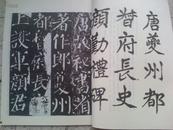 唐夔州都
督府長史
顏勤禮碑
唐故秘書省
著作郎夔州
都督府長史
上護軍顏君